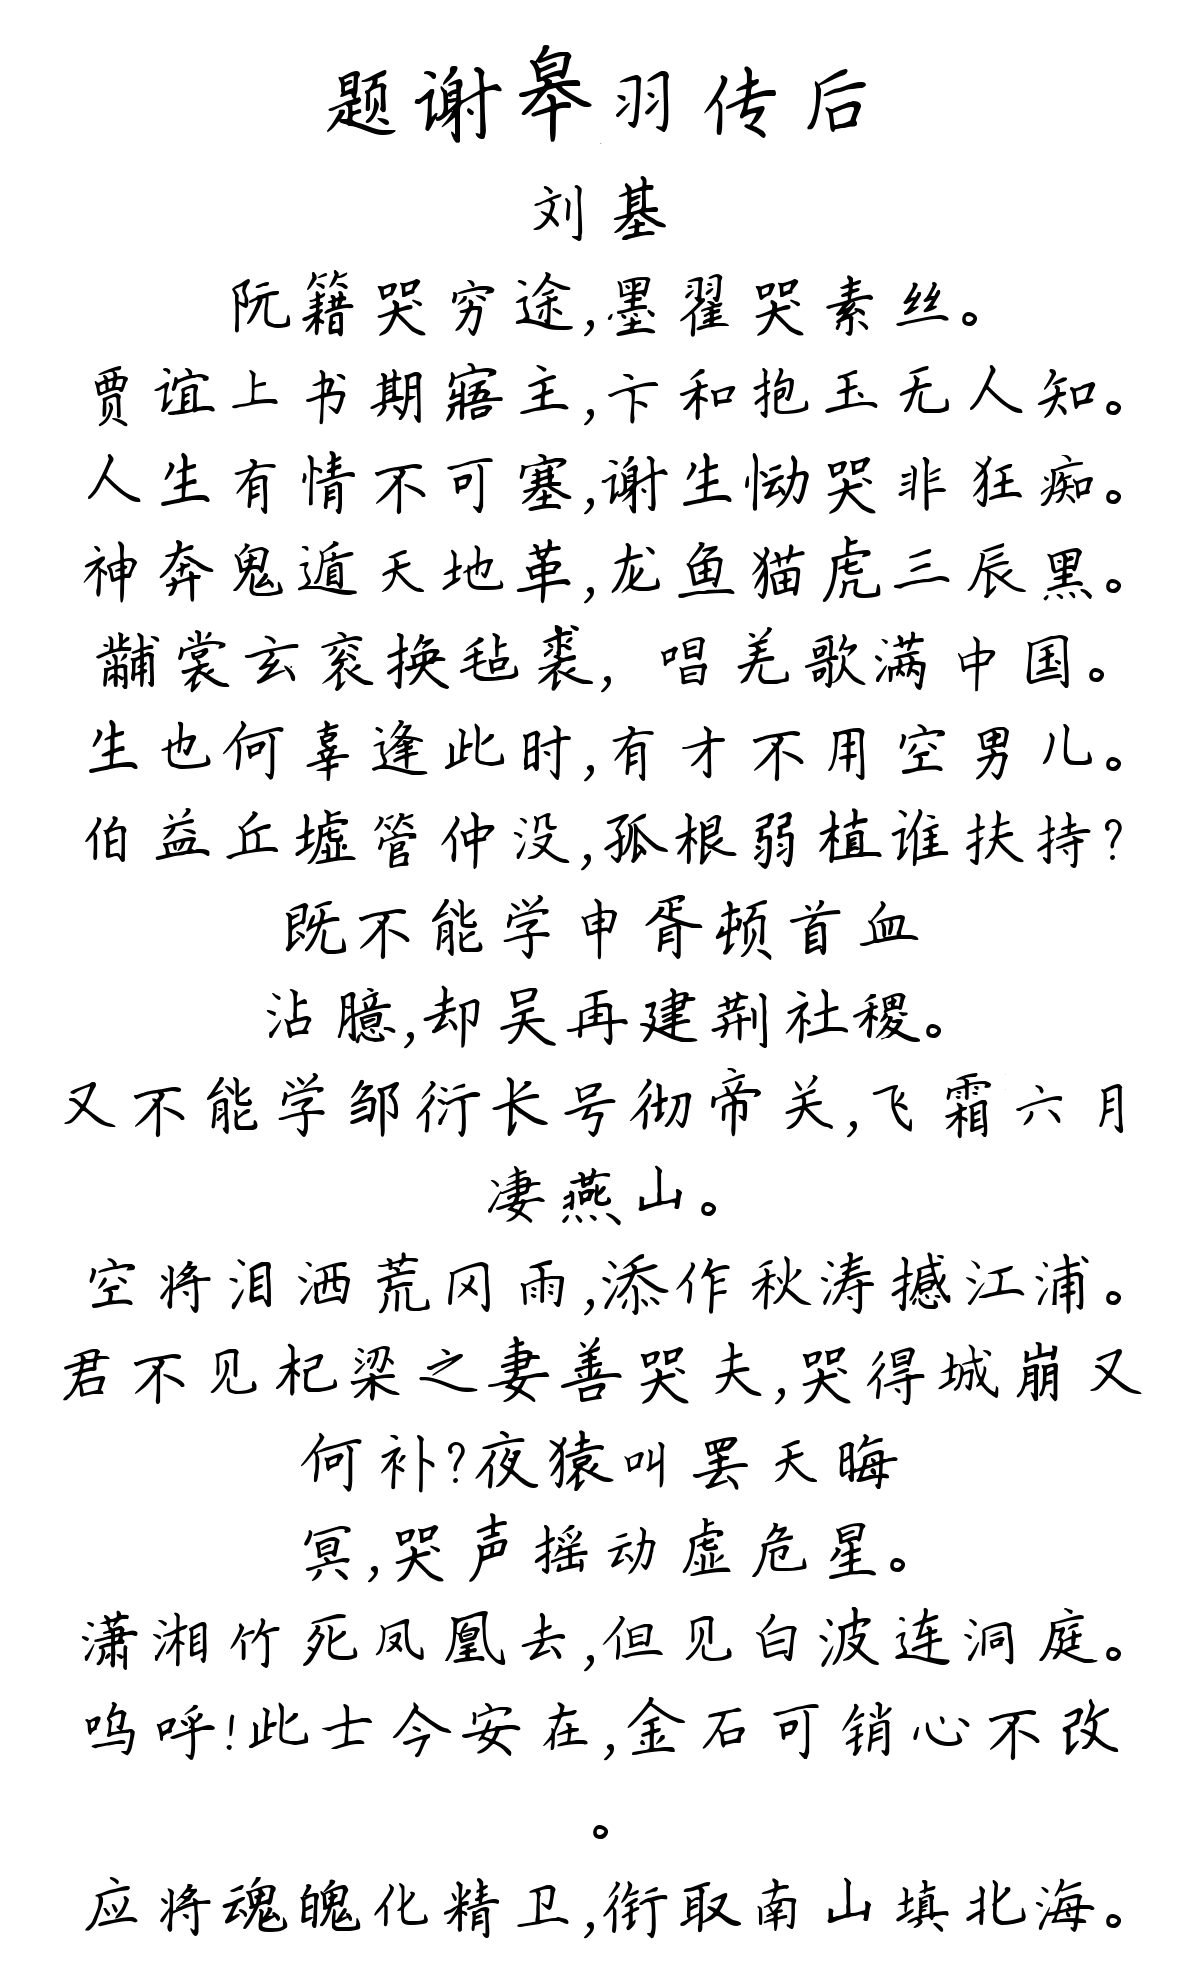 题谢皋羽传后
刘基
阮籍哭穷途,墨翟哭素丝。
贾谊上书期寤主,卞和抱玉无人知。
人生有情不可塞,谢生恸哭非狂痴。
神奔鬼遁天地革,龙鱼猫虎三辰黑。
黼裳玄衮换毡裘, 唱羌歌满中国。
生也何辜逢此时,有才不用空男儿。
伯益丘墟管仲没,孤根弱植谁扶持?
既不能学申胥顿首血
沾臆,却吴再建荆社稷。
又不能学邹衍长号彻帝关,飞霜六月
凄燕山。
空将泪洒荒冈雨,添作秋涛撼江浦。
君不见杞梁之妻善哭夫,哭得城崩又
何补?夜猿叫罢天晦
冥,哭声摇动虚危星。
潇湘竹死凤凰去,但见白波连洞庭。
呜呼!此士今安在,金石可销心不改
。
应将魂魄化精卫,衔取南山填北海。